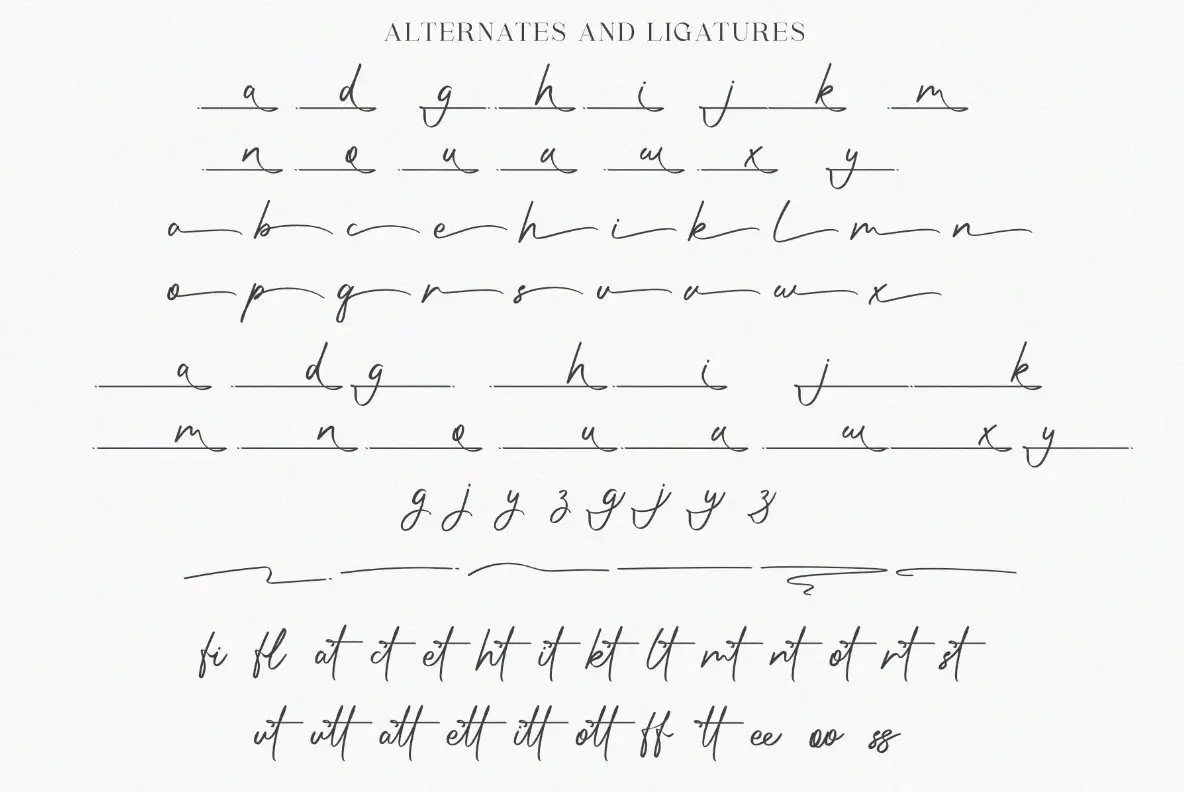 ALTERNATES AND LIGATURES
a d g h i j k m
n o u a w x y
a b c e h i k l m n
o p q r s u v w x
a d g h i j k
m n o u a w x y
g j y z g j y z
fi fl at ct et ht it kt lt mt nt ot rt st
ut utt att ett itt ott ff tt ee oo ss